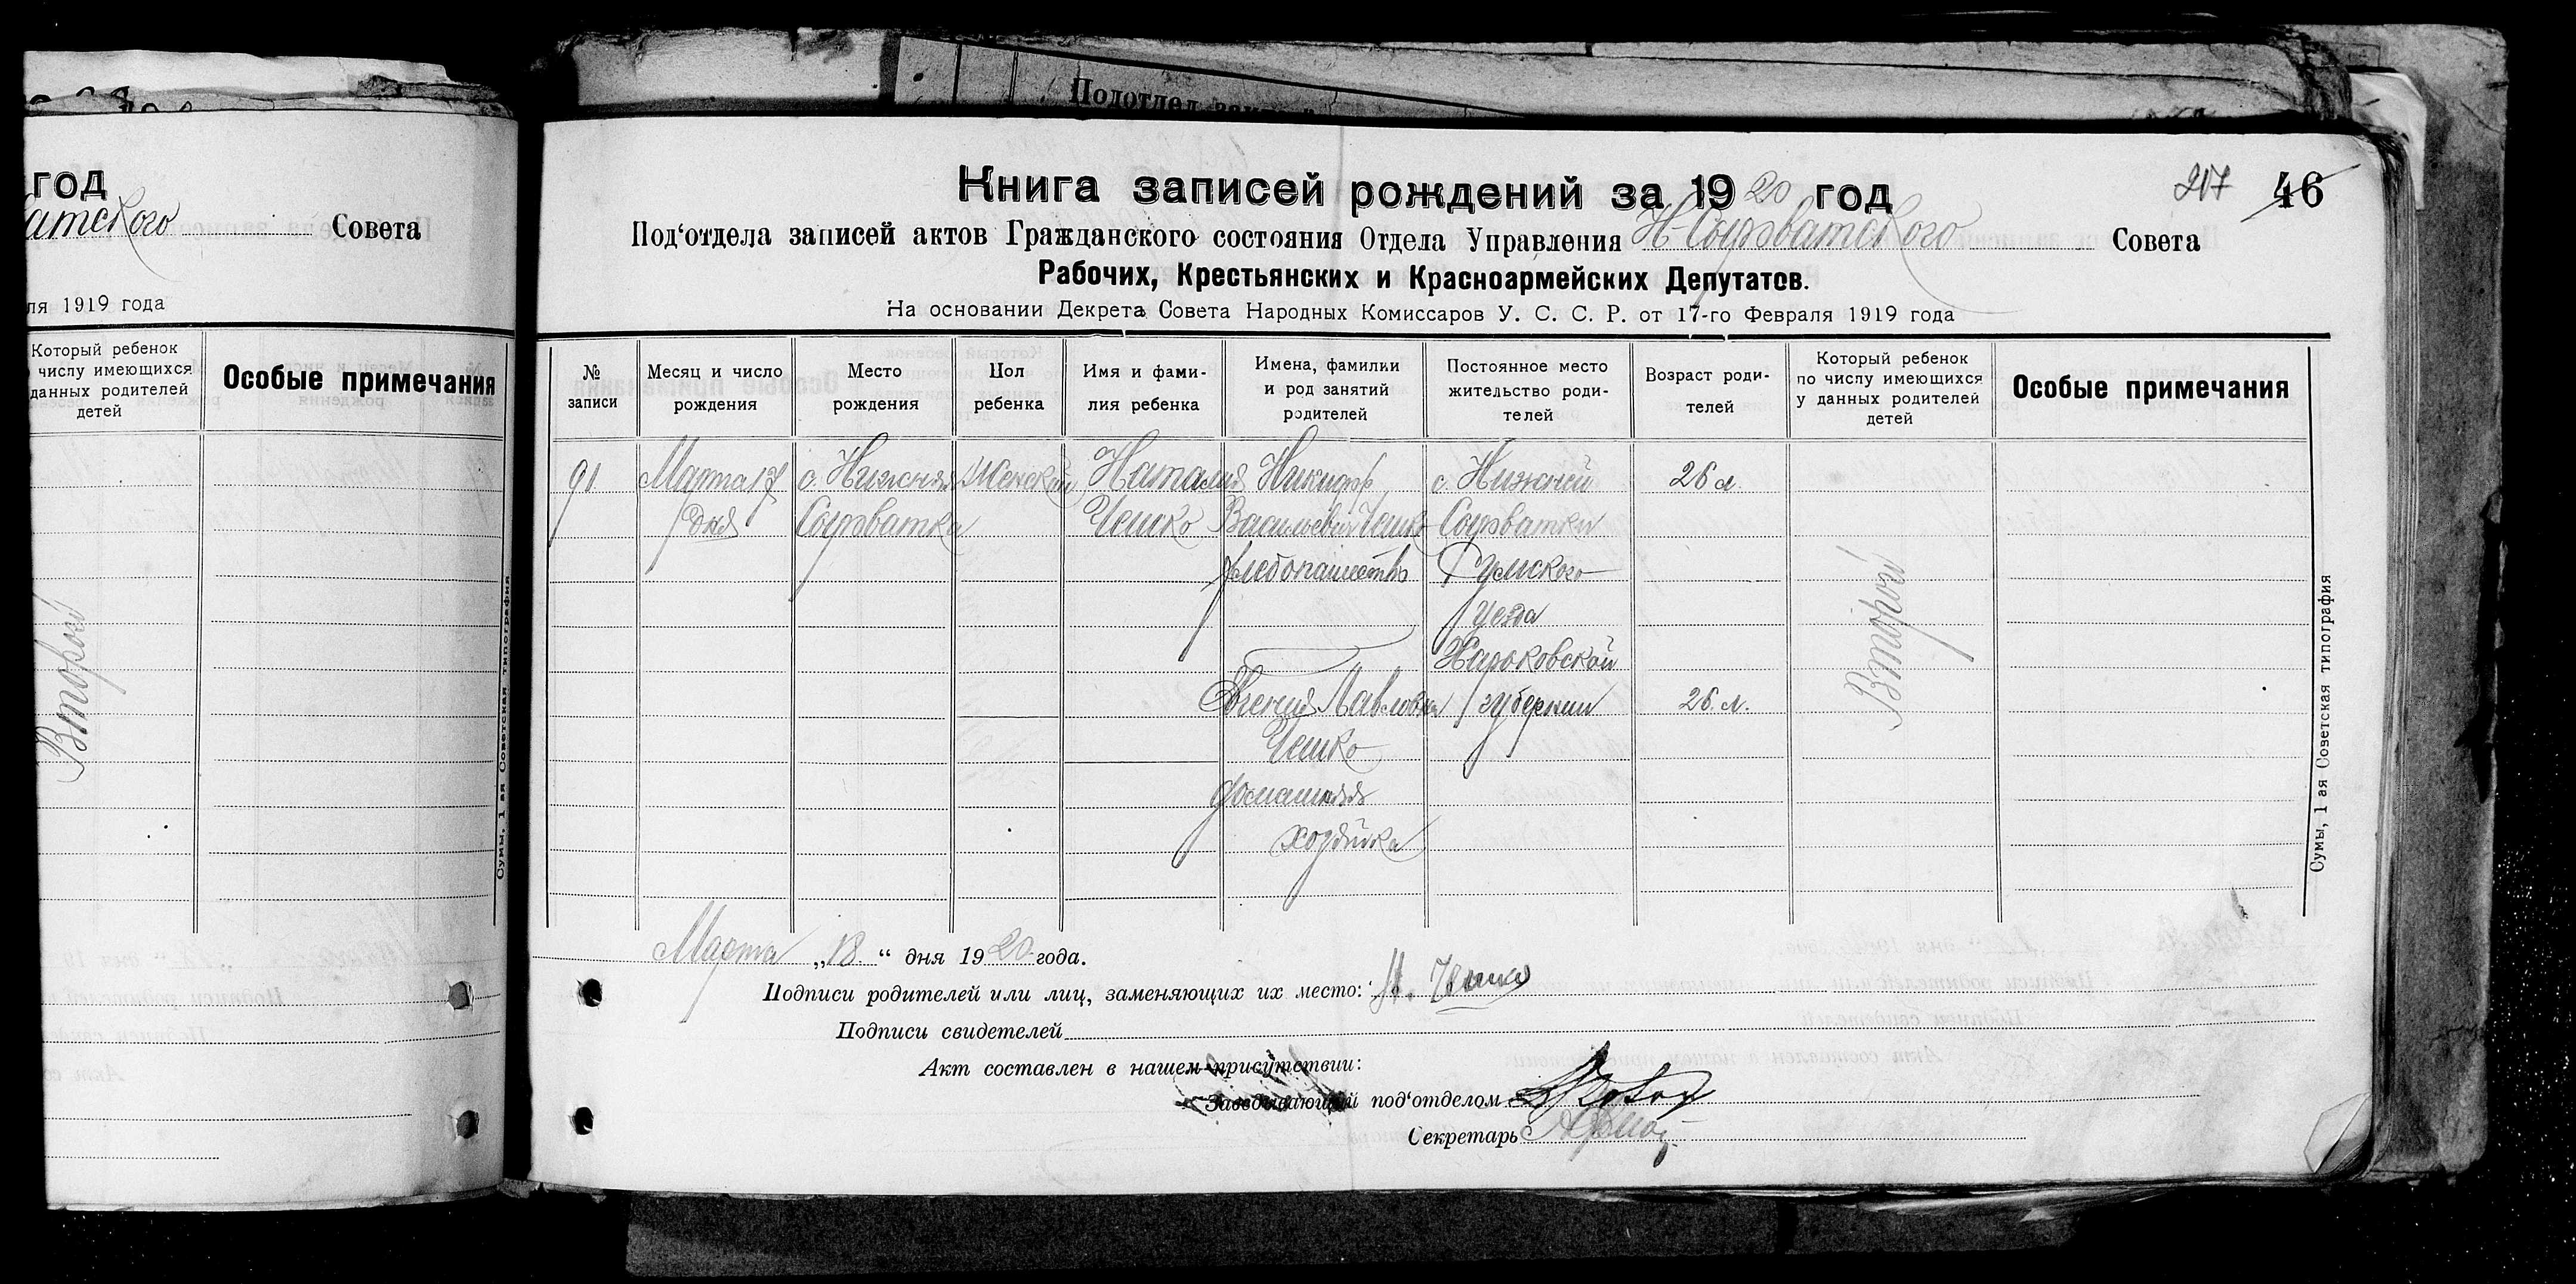 Подотдел
год
атского Совета
ля 1919 года
Который ребенок
числу имеющихся
данных родителей
детей
Особые примечания
Второй
Сумы, 1 ая Советская типография
Книга записей рождений за 1920 год
217 46
Под‘отдела записей актов Гражданского состояния Отдела Управления Н-Сыроватского Совета
Рабочих, Крестьянских и Красноармейских Депутатов.
На основании Декрета Совета Народных Комиссаров У. С. С. Р. от 17-го Февраля 1919 года
№
записи
Месяц и число
рождения
Место
рождения
Пол
ребенка
Имя и фами-
лия ребенка
Имена, фамилии
и род занятий
родителей
Постоянное место
жительство роди-
телей
Возраст роди-
телей
Который ребенок
по числу имеющихся
у данных родителей
детей
Особые примечания
91 Марта 17 с. Нижняя Женский Наталия Никифор с. Нижней 26 л.
дня Сыроватка Чешко Васильевич Чешко Сыроватки
хлебопашество Сумского
уезда
Харьковской
Евгения Павловна губернии 26 л.
Чешко
домашняя
хозяйка
Второй
Сумы, 1 ая Советская типография
Марта „18“ дня 1920 года.
Подписи родителей или лиц, заменяющих их место: Н. Чешко
Подписи свидетелей
Акт составлен в нашем присутствии:
Заведывающий под‘отделом
Секретарь